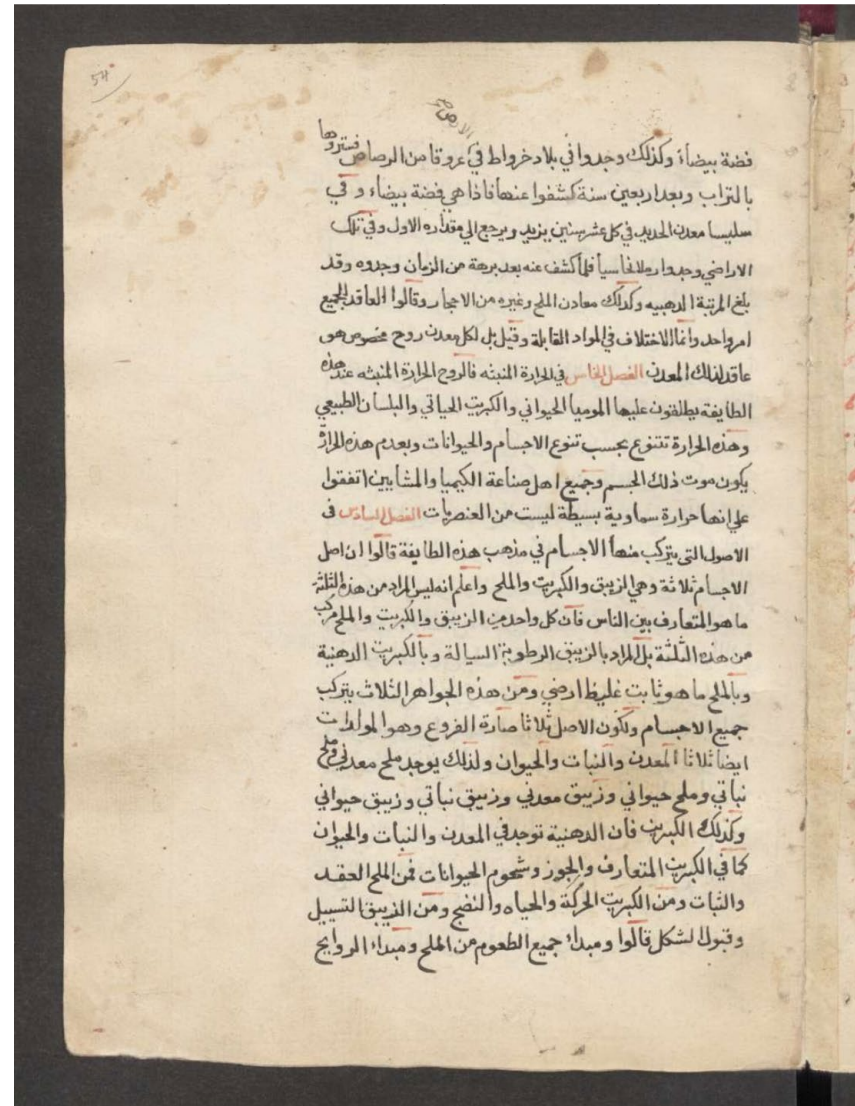 54
الارض
فضة بيضاء وكذلك وجدوا في بلاد خرواط في عروقا من الرصاص فستروها
بالتراب وبعد اربعين سنة كشفوا عنها فاذا هي فضة بيضاء وفي
سليسا معدن الحديد في كل عشر سنين يزيد ويرجع الي مقداره الاول وفي تلك
الاراضي وجدوا رملا نحاسيا فلما كشف عنه بعد برهة من الزمان وجدوه وقد
بلغ المرتبة الذهبيه وكذلك معادن الملح وغيره من الاحجار وقالوا العاقد للجميع
امر واحد وانما الاختلاف في المواد القابلة وقيل بل لكل معدن روح مخصوص هو
عاقد لذلك المعدن الفصل الخامس في الحرارة المنبثه فالروح الحرارة المنبثه عند هذه
الطايفة يطلقون عليها الموميا الحيواني والكبريت الحياتي والبلسان الطبيعي
وهذه الحرارة تتنوع بحسب تنوع الاجسام والحيوانات وبعدم هذه الحرارة
يكون موت ذلك الجسم وجميع اهل صناعة الكيميا والمشايين اتفقوا
علي انها حرارة سماوية بسيطة ليست من العنصريات الفصل السادس في
الاصول التي يتركب منها الاجسام في مذهب هذه الطايفة قالوا ان اصل
الاجسام ثلاثة وهي الزيبق والكبريت والملح واعلم انه ليس المراد من هذه الثلثة
ما هو المتعارف بين الناس فان كل واحد من الزيبق والكبريت والملح مركب
من هذه الثلثة بل المراد بالزيبق الرطوبة السيالة وبالكبريت الدهنية
وبالملح ما هو ثابت غليظ ارضي ومن هذه الجواهر الثلاث يتركب
جميع الاجسام ولكون الاصل ثلاثا صارة الفروع وهو المولدات
ايضا ثلاثا المعدن والنبات والحيوان ولذلك يوجد ملح معدني وملح
نباتي وملح حيواني وزيبق معدني وزيبق نباتي وزيبق حيواني
وكذلك الكبريت فان الدهنية توجد في المعدن والنبات والحيوان
كما في الكبريت المتعارف والجوز وشحوم الحيوانات فمن الملح العقد
والثبات ومن الكبريت الحركة والحياه والنضج ومن الزيبق التسييل
وقبول الشكل قالوا ومبداء جميع الطعوم من الملح ومبداء الروايح